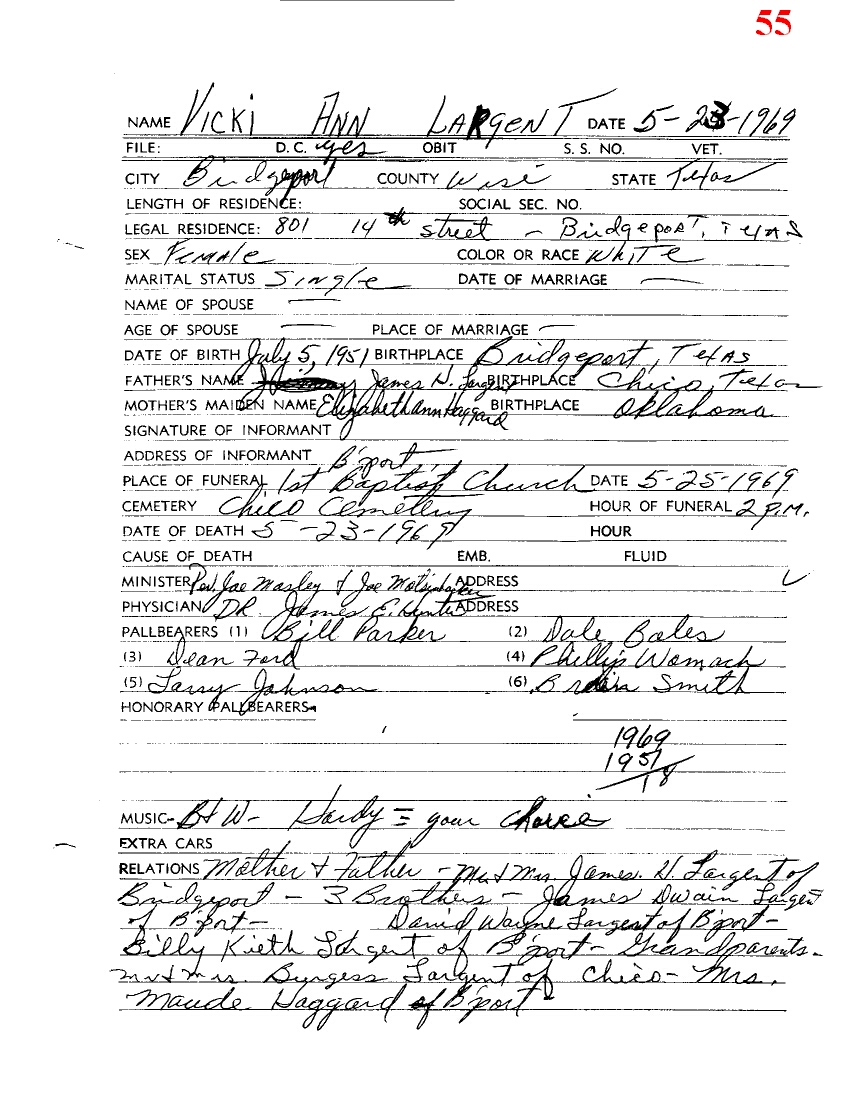 55
NAME Vicki Ann Largent DATE 5-23-1969
FILE: D.C. yes OBIT S. S. NO. VET.
CITY Bridgeport COUNTY Wise STATE Texas
LENGTH OF RESIDENCE: SOCIAL SEC. NO.
LEGAL RESIDENCE: 801 14th street - Bridgeport, Texas
SEX Female COLOR OR RACE White
MARITAL STATUS Single DATE OF MARRIAGE —
NAME OF SPOUSE —
AGE OF SPOUSE — PLACE OF MARRIAGE —
DATE OF BIRTH July 5, 1951 BIRTHPLACE Bridgeport, Texas
FATHER'S NAME James H. Largent BIRTHPLACE Chico, Texas
MOTHER'S MAIDEN NAME Elizabeth Ann Haggard BIRTHPLACE Oklahoma
SIGNATURE OF INFORMANT
ADDRESS OF INFORMANT B'port,
PLACE OF FUNERAL 1st Baptist Church DATE 5-25-1969
CEMETERY Chico Cemetery HOUR OF FUNERAL 2 P.M.
DATE OF DEATH 5-23-1969 HOUR
CAUSE OF DEATH EMB. FLUID
MINISTER Rev. Joe Masley & Joe ADDRESS
PHYSICIAN DR. James E. Hunter ADDRESS
PALLBEARERS (1) Bill Parker (2) Dale Boles
(3) Dean Ford (4) Phillip Womack
(5) Larry Johnson (6) Smith
HONORARY PALLBEARERS-
1969
1951
18
MUSIC- B&W- Hardy = your choice
EXTRA CARS
RELATIONS Mother & Father - Mr & Mrs. James. H. Largent of
Bridgeport - 3 Brothers - James Dwain Largent
of B'port - David Wayne Largent of B'port -
Billy Kieth Largent of B'port - Grandparents -
Mr & Mrs. Burgess Largent of Chico - Mrs.
Maude Haggard of B'port -